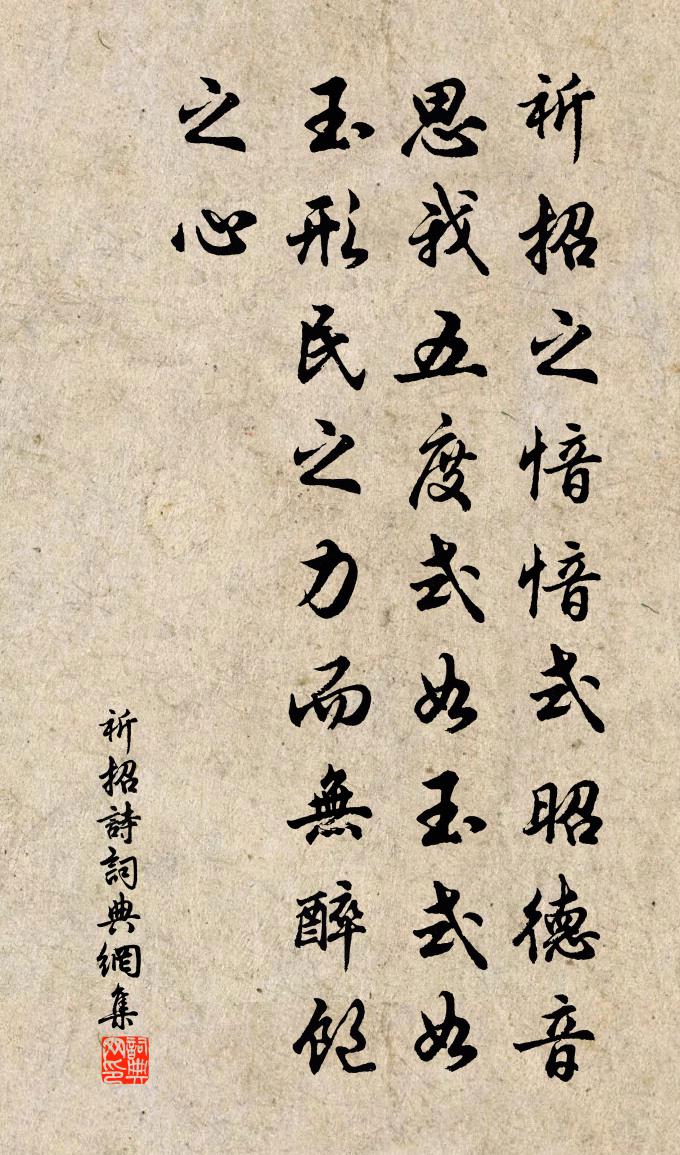 祈招之愔愔式昭德音
思我五度式如玉式如
玉形民之力而無醉飽
之心
祈招詩詞典網集
詞典
网印